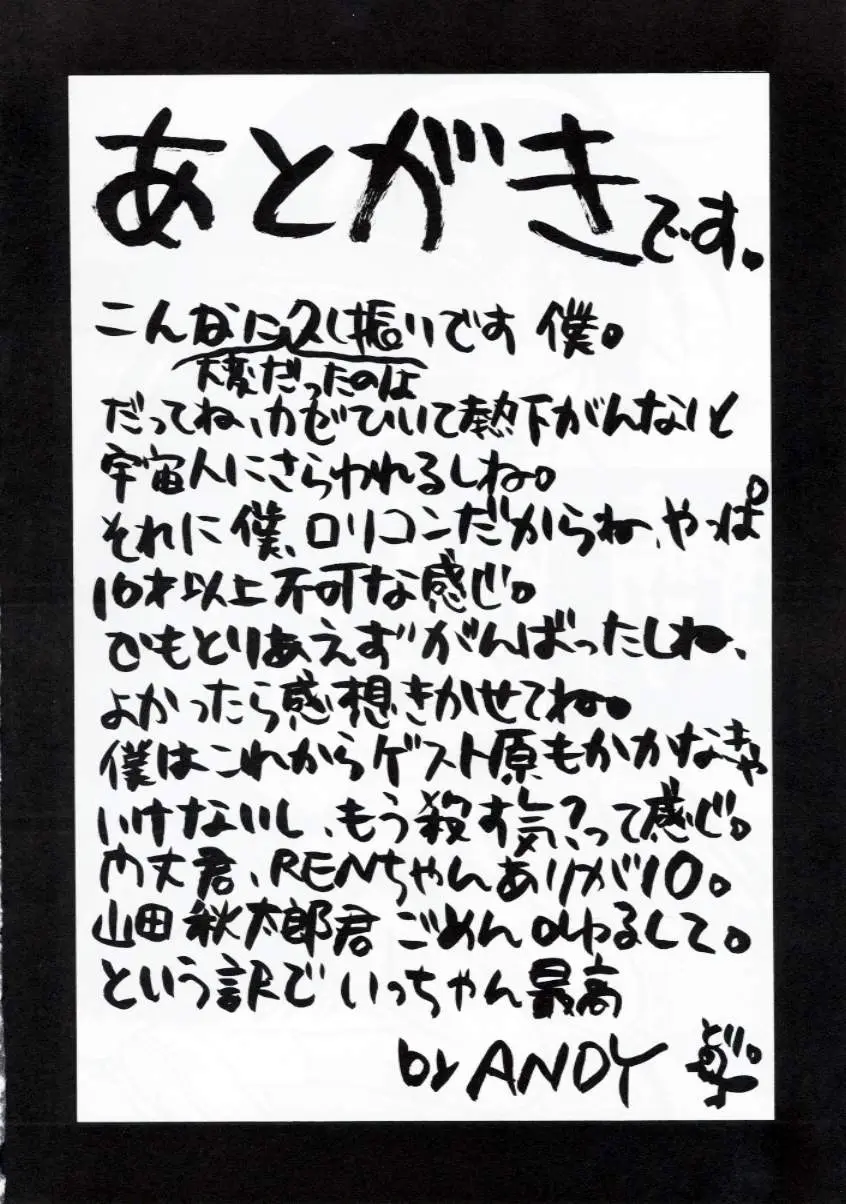 あとがきです。
こんなに久し振りです 僕。
大変だったのは
だってね、カゼひいて熱下がんないと
宇宙人にさらわれるしね。
それに僕、ロリコンだからね、やっぱ
10才以上不可な感じ。
でもとりあえずがんばったしね、
よかったら感想きかせてね。
僕はこれからゲスト原もかかなきゃ
いけないし、もう殺す気?って感じ。
内丈君、RENちゃんありが10。
山田秋太郎君 ごめん ゆるして。
という訳で いっちゃん最高
by ANDY
とり。